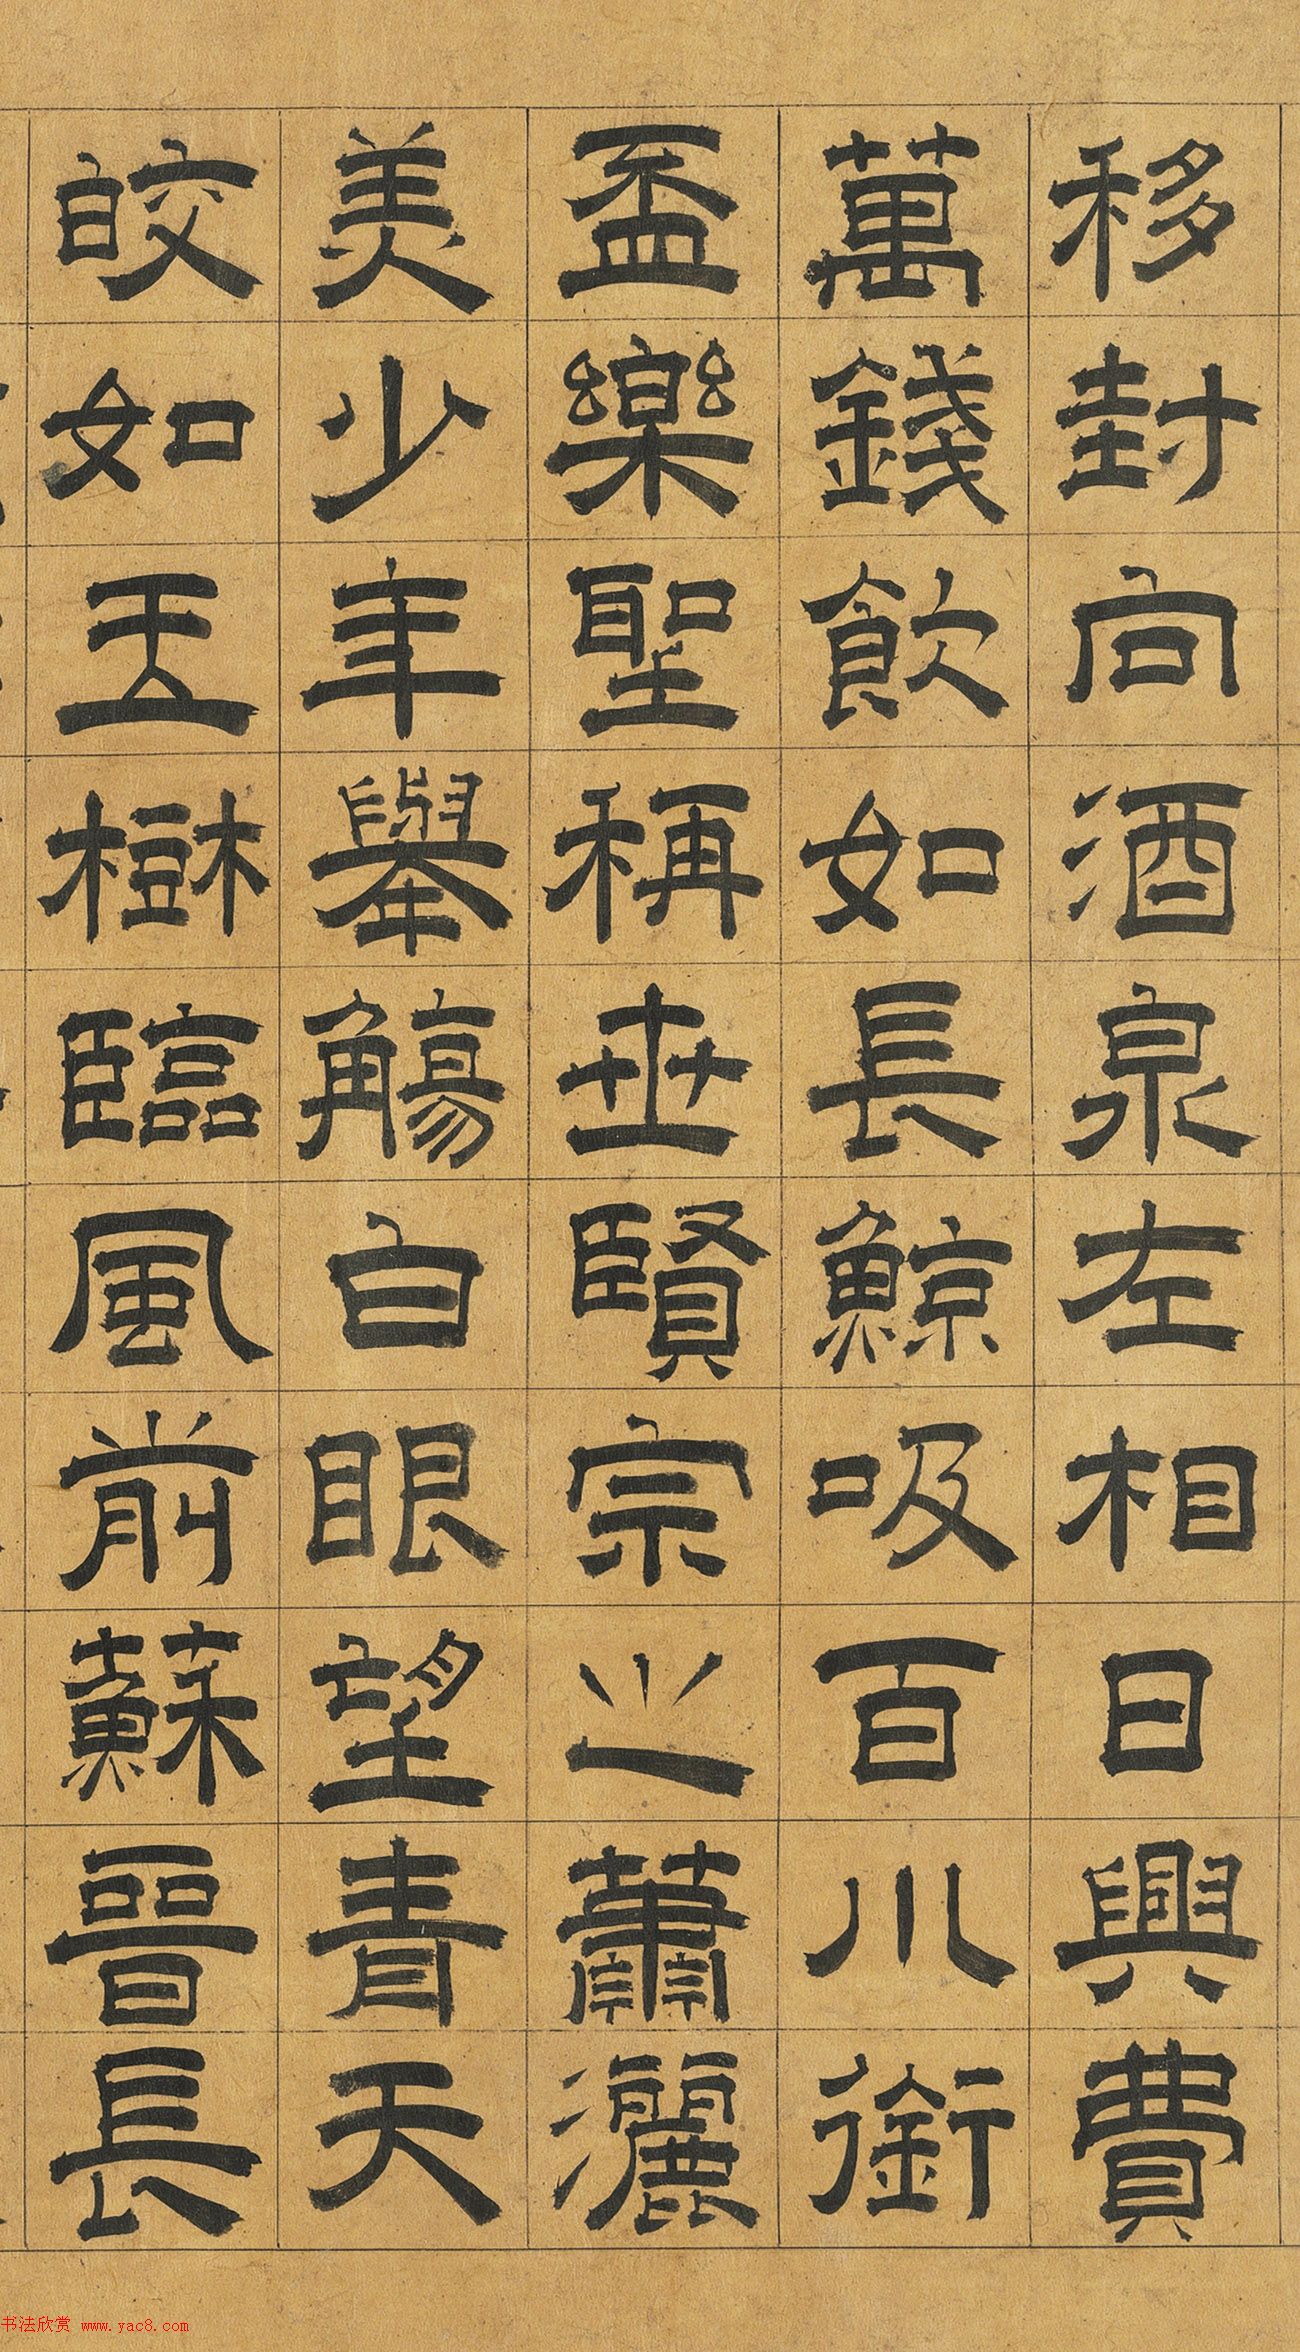 移封向酒泉左相日興費
萬錢飲如長鯨吸百川銜
盃樂聖稱世賢宗之蕭灑
美少年舉觴白眼望青天
皎如玉樹臨風前蘇晉長
书法欣赏 www.yac8.com